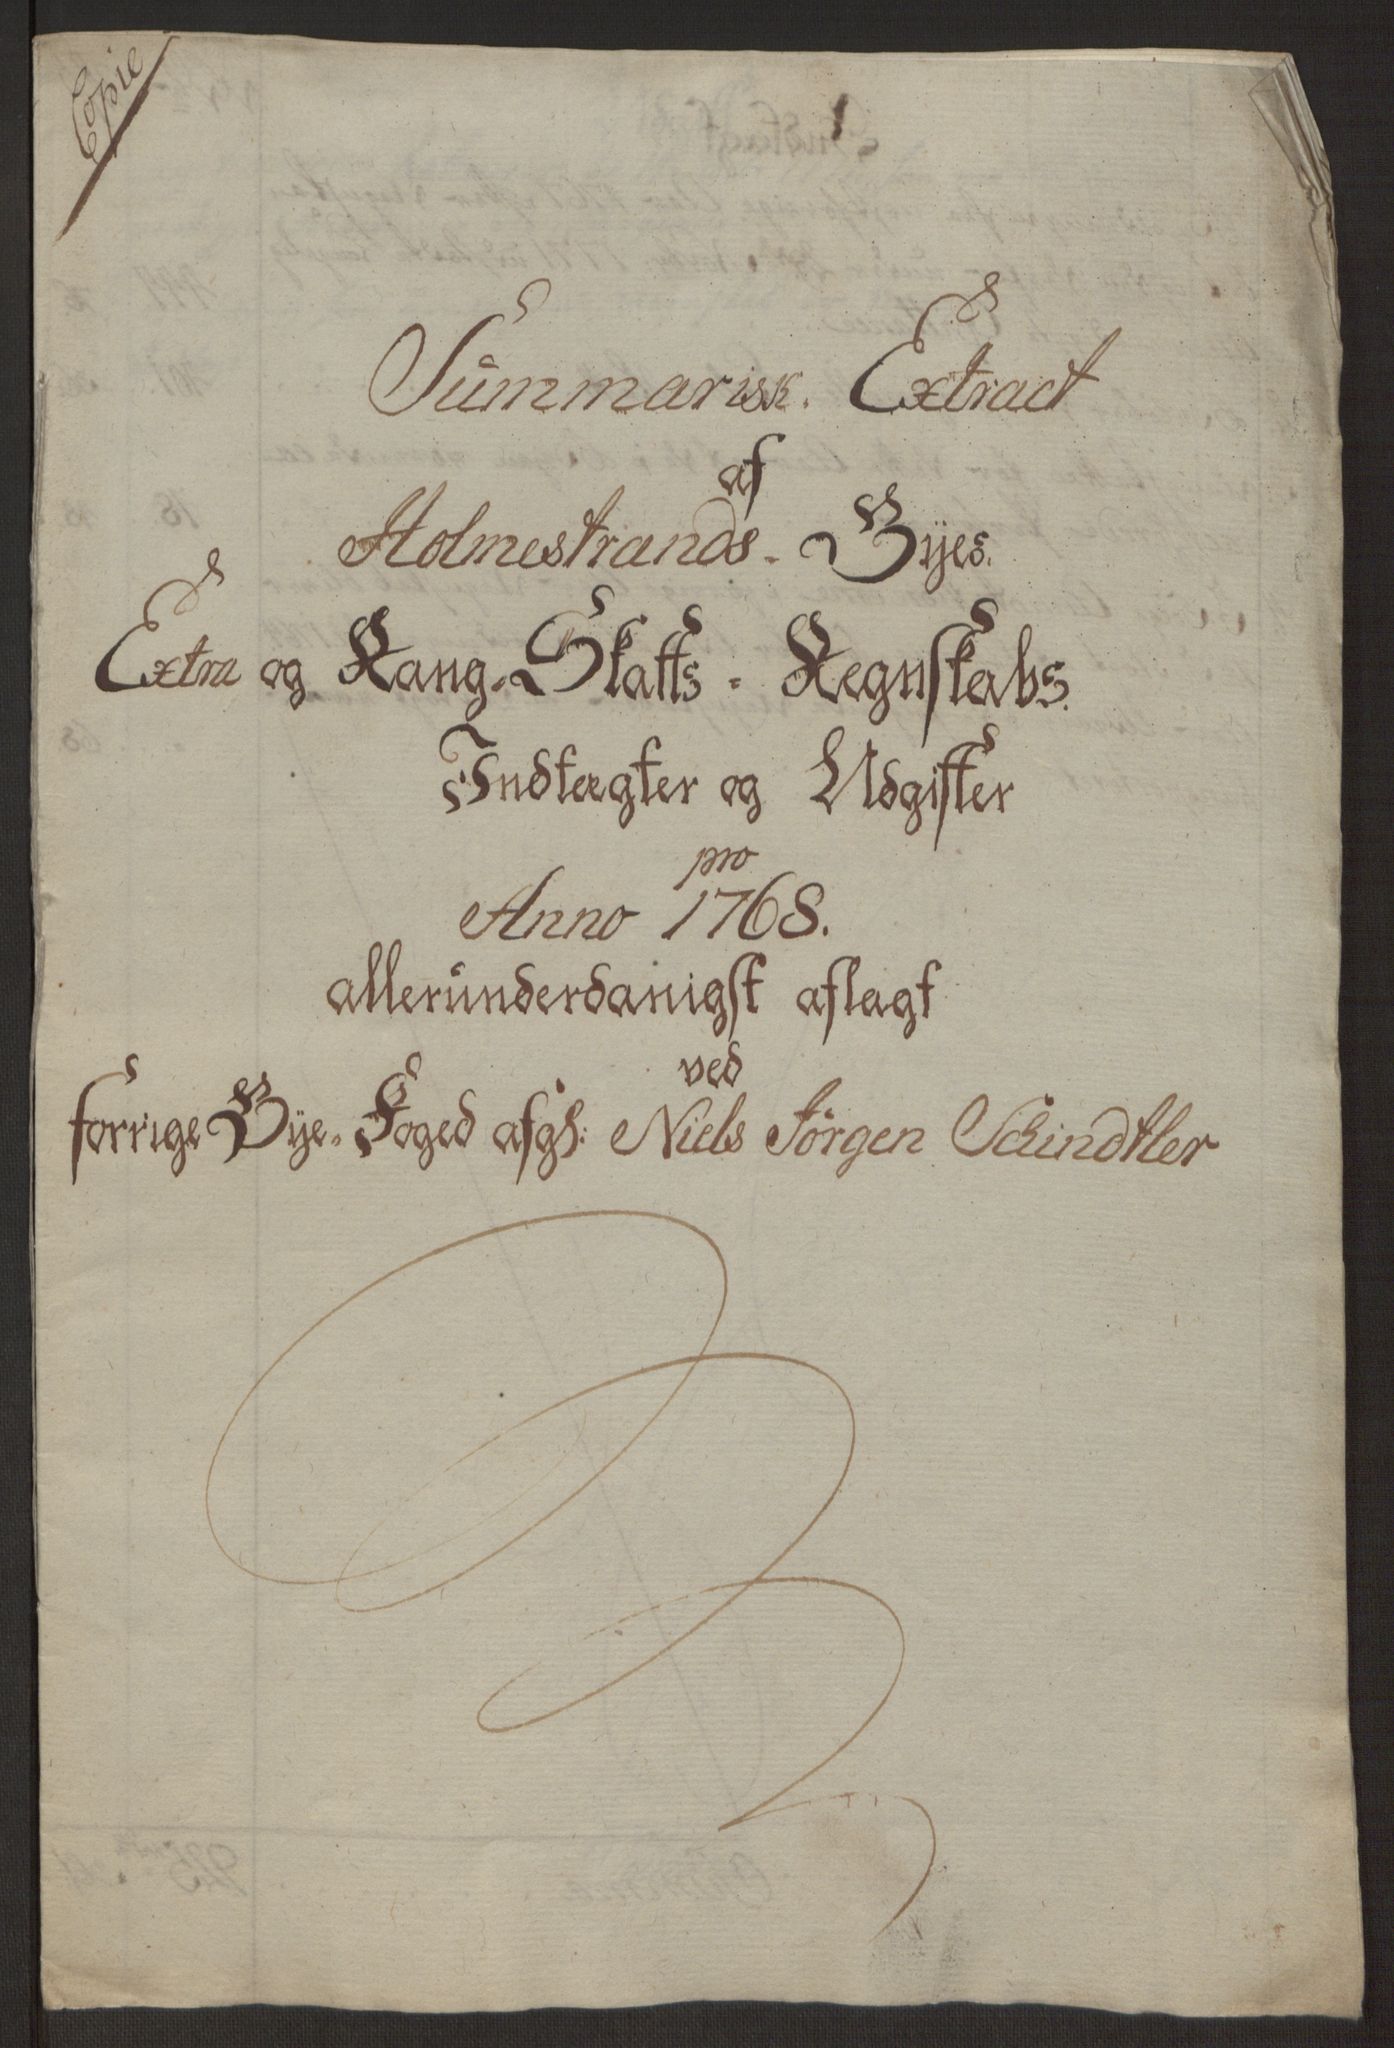 Copie
Summarisk. Extract
af
Holmestrands. Byes.
Extra og Rang-Skatts-Regnskabs.
Indtægter og Udgifter
pro
Anno 1768.
allerunderdanigst aflagt
ved
forrige Bye-Foged afgl: Niels Jørgen Schindtler